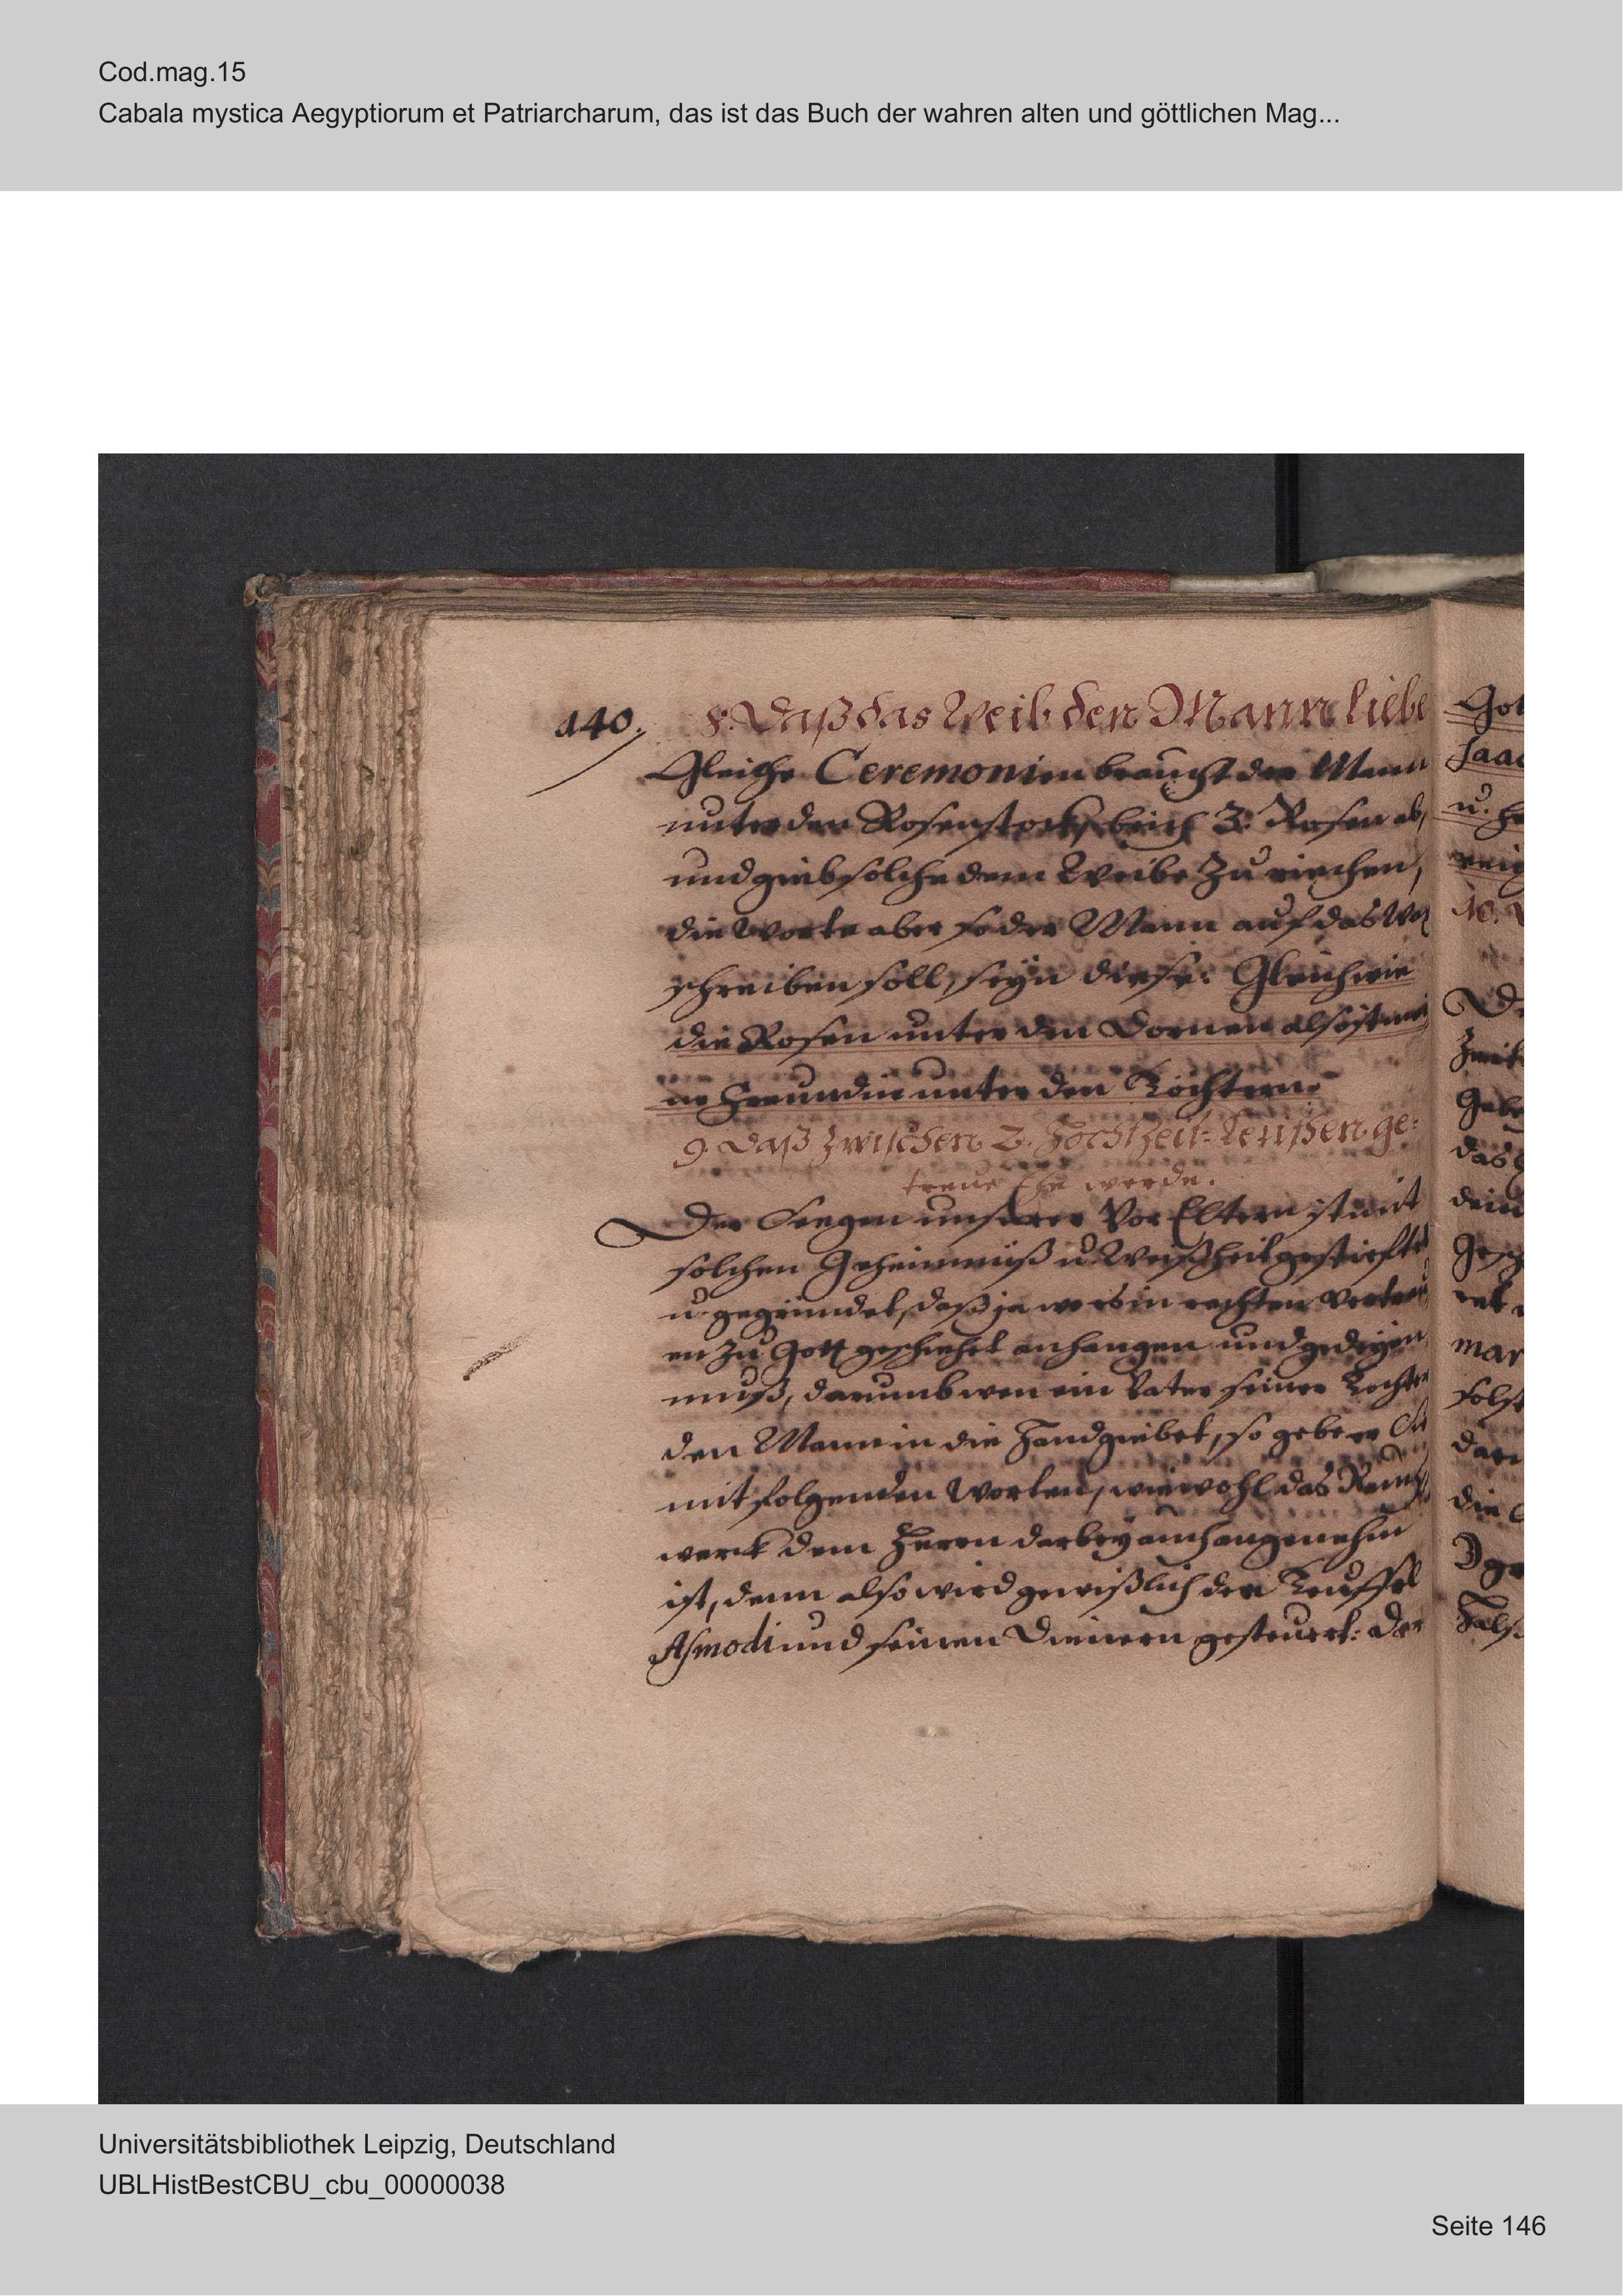 Cod.mag.15
Cabala mystica Aegyptiorum et Patriarcharum, das ist das Buch der wahren alten und göttlichen Mag...
140.
8. Daß das Weib den Mann liebe
Gleiche Ceremonien braucht der Mann
unter der Rosenstock, brich 3. Rosen ab,
und gieb solche dem Weibe zu riechen,
die Worte aber so der Mann auf das
schreiben soll, seyn diese: Gleich wie
die Rosen unter den Dornen also ist mei
ne Freundin unter den Töchtern.
9. Daß zwischen 2. Hochzeit-Leuthen ge-
treue Ehe werde.
Der Seegen unserer Vor Eltern ist mit
solchen Geheimnüß u. Weißheit gestifftet
u. gegründet, daß ja wo es in rechten Vertrau
en zu Gott geschiehet anhangen und gedeyen
muß, darumb wen ein Vater seiner Tochter
den Mann in die Hand giebet, so gebe er Sie
mit folgenden Worten, wiewohl das
werck dem Herrn darbey auch angenehm
ist, denn also wird gewißlich der Teuffel
Asmodi und seinen Dienern gesteuert: Der
Universitätsbibliothek Leipzig, Deutschland
UBLHistBestCBU_cbu_00000038
Seite 146